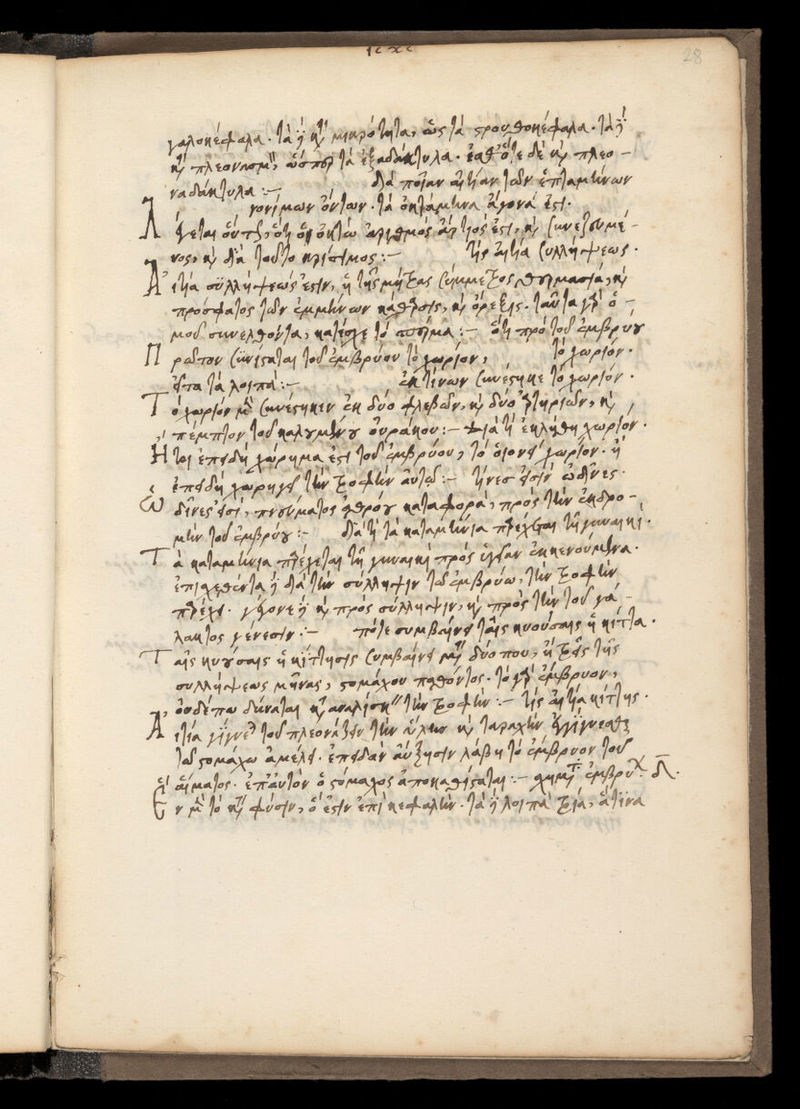 28
γαλοκέφαλα. τὰ δὲ κατὰ μικρότητα, ὡς τὰ στρουθοκέφαλα. τὰ δὲ
κατὰ πλεονασμὸν, ὥσπερ τὰ ἑξαδάκτυλα. ἔσθ' ὅτε δὲ καὶ πλεο-
ναδάκτυλα :- διὰ ποίαν αἰτίαν τῶν ἑπταμήνων
γονίμων ὄντων. τὰ ὀκτάμηνα ἄγονά ἐστι.
Λέγεται οὕτως, ὅτι ὁ ὀκτὼ ἀριθμὸς ἄρτιός ἐστι, καὶ συνεζευγμέ-
νος, καὶ διὰ τοῦτο κρίσιμος :- τίς αἰτία συλλήψεως.
Αἰτία συλλήψεώς ἐστιν, ἡ τῆς μήτρας σύμμετρος θερμασία, καὶ
πρόσφατος τῶν ἐμμήνων κάθαρσις, καὶ ὄρεξις. ταῦτα γὰρ ὁ-
μοῦ συνελθόντα, κατέσχε τὸ σπέρμα :- ὅτι πρὸ τοῦ ἐμβρύου
Πρῶτον συνίσταται τοῦ ἐμβρύου τὸ χωρίον, τὸ χωρίον.
εἶτα τὰ λοιπά :- ἐκ τίνων συνέστηκε τὸ χωρίον.
Τὸ χωρίον μὲν συνέστηκεν ἐκ δύο φλεβῶν, καὶ δύο ἀρτηριῶν, καὶ
πέμπτου τοῦ καλουμένου οὐράχου :- διὰ τί ἐκλήθη χωρίον.
Ἤτοι ἐπειδὴ χώρημα ἐστὶ τοῦ ἐμβρύου, τὸ οἱονεὶ χωρίον. ἢ
ἐπειδὴ χωρηγεῖ τὴν τροφὴν αὐτῷ :- τίνες εἰσὶν ὠδῖνες.
Ὠδῖνές εἰσι, πνεύματος ἀθρόου καταφορὰ, πρὸς τὴν ἐκδρο-
μὴν τοῦ ἐμβρύου :- διὰ τί τὰ καταμήνια παρέχεται τῇ γυναικί.
Τὰ καταμήνια παρέχεται τῇ γυναικὶ πρὸς ὑγείαν ἐκκενούμενα.
ἐπισχεθέντα δὲ διὰ τὴν σύλληψιν τῷ ἐμβρύῳ, τὴν τροφὴν
παρέχει. γέγονε δὲ καὶ πρὸς σύλληψιν, καὶ πρὸς τὴν τοῦ γά-
λακτος γένεσιν :- πότε συμβαίνει ταῖς κυούσαις ἡ κίττα.
Ταῖς κυούσαις ἡ κίττησις συμβαίνει μετὰ δύο που, ἢ τρεῖς τῆς
συλλήψεως μῆνας, στομάχου παθόντος. τὸ γὰρ ἔμβρυον,
οὐδέπω δύναται καταναλίσκειν τὴν τροφήν :- τίς αἰτία κίττης.
Αἰτία γίγνεται τοῦ πλεονάζειν τὴν ὕλην καὶ ταραχὴν ἐγγίγνεσθαι
τῷ στομάχῳ ἀμέλει. ἐπειδὰν αὔξησιν λάβῃ τὸ ἔμβρυον τοῦ
αἵματος. ἐπ' αὐτὸν ὁ στόμαχος ἀποκαθίσταται :- σχήματα ἐμβρύου. δ̅.
Ἓν μὲν τὸ κατὰ φύσιν, ὅ ἐστιν ἐπὶ κεφαλήν. τὰ δὲ λοιπὰ τρία, ἅτινα